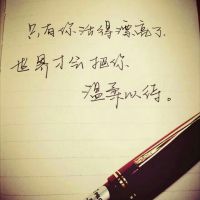 只有你活得漂亮了
世界才会把你
温柔以待。